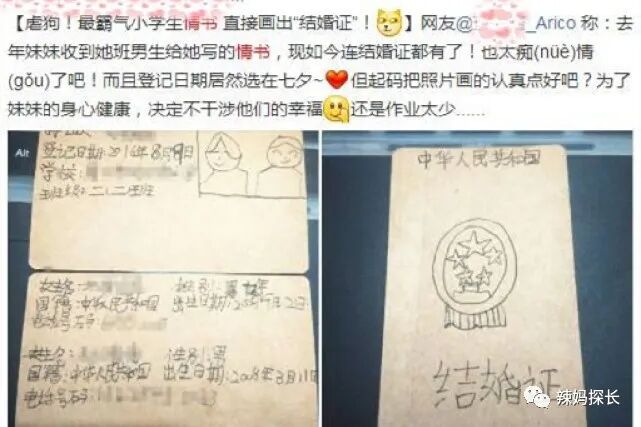 【虐狗！最霸气小学生情书 直接画出“结婚证”！ 网友@ _Arico 称：去
年妹妹收到她班男生给她写的情书，现如今连结婚证都有了！也太痴(nüè)情
(gǒu)了吧！而且登记日期居然选在七夕~ 但起码把照片画的认真点好吧？为了
妹妹的身心健康，决定不干涉他们的幸福 还是作业太少......
Alt
登记日期:2016年8月9日
学校:
班级:二(二)班
姓名: 性别:
国籍:中华人民共和国 出生日期:
电话号码:
姓名 性别:男
国籍:中华人民共和国 出生日期:2008年3月11日
电话号码
中华人民共和国
结婚证
辣妈探长